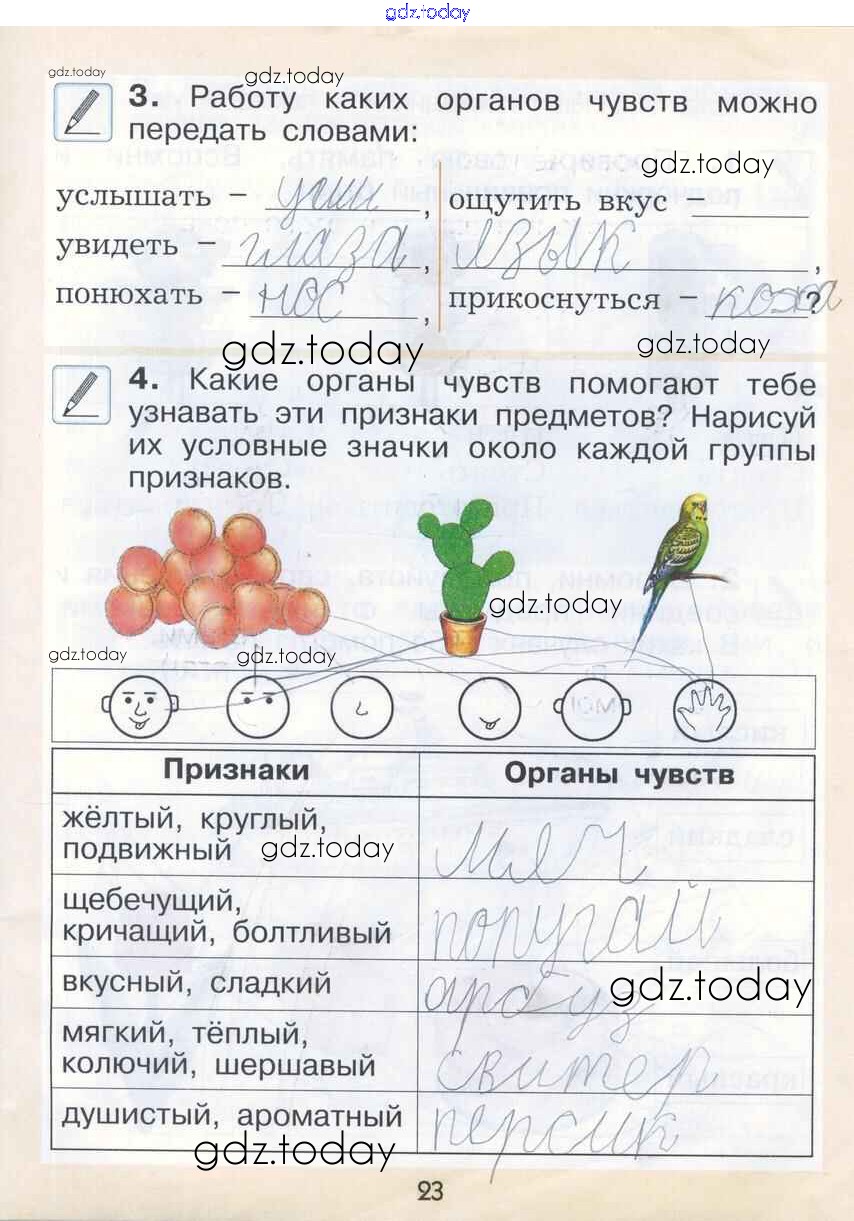 gdz.today
gdz.today
gdz.today
3. Работу каких органов чувств можно
передать словами:
gdz.today
услышать – уши, ощутить вкус
увидеть – глаза, язык,
понюхать – нос, прикоснуться – кожа?
gdz.today
gdz.today
4. Какие органы чувств помогают тебе
узнавать эти признаки предметов? Нарисуй
их условные значки около каждой группы
признаков.
gdz.today
gdz.today
gdz.today
Признаки Органы чувств
жёлтый, круглый,
подвижный мяч
gdz.today
щебечущий,
кричащий, болтливый попугай
вкусный, сладкий арбуз
gdz.today
мягкий, тёплый,
колючий, шершавый свитер
душистый, ароматный персик
gdz.today
23